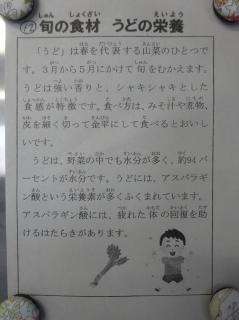 ⑫ 旬の食材 うどの栄養
「うど」は春を代表する山菜のひとつで
す。３月から５月にかけて旬をむかえます。
うどは強い香りと、シャキシャキとした
食感が特徴です。食べ方は、みそ汁や煮物、
皮を細く切って金平にして食べるとおいし
いです。
うどは、野菜の中でも水分が多く、約94パ
ーセントが水分です。うどには、アスパラギ
ン酸という栄養素が多くふくまれています。
アスパラギン酸には、疲れた体の回復を助
けるはたらきがあります。